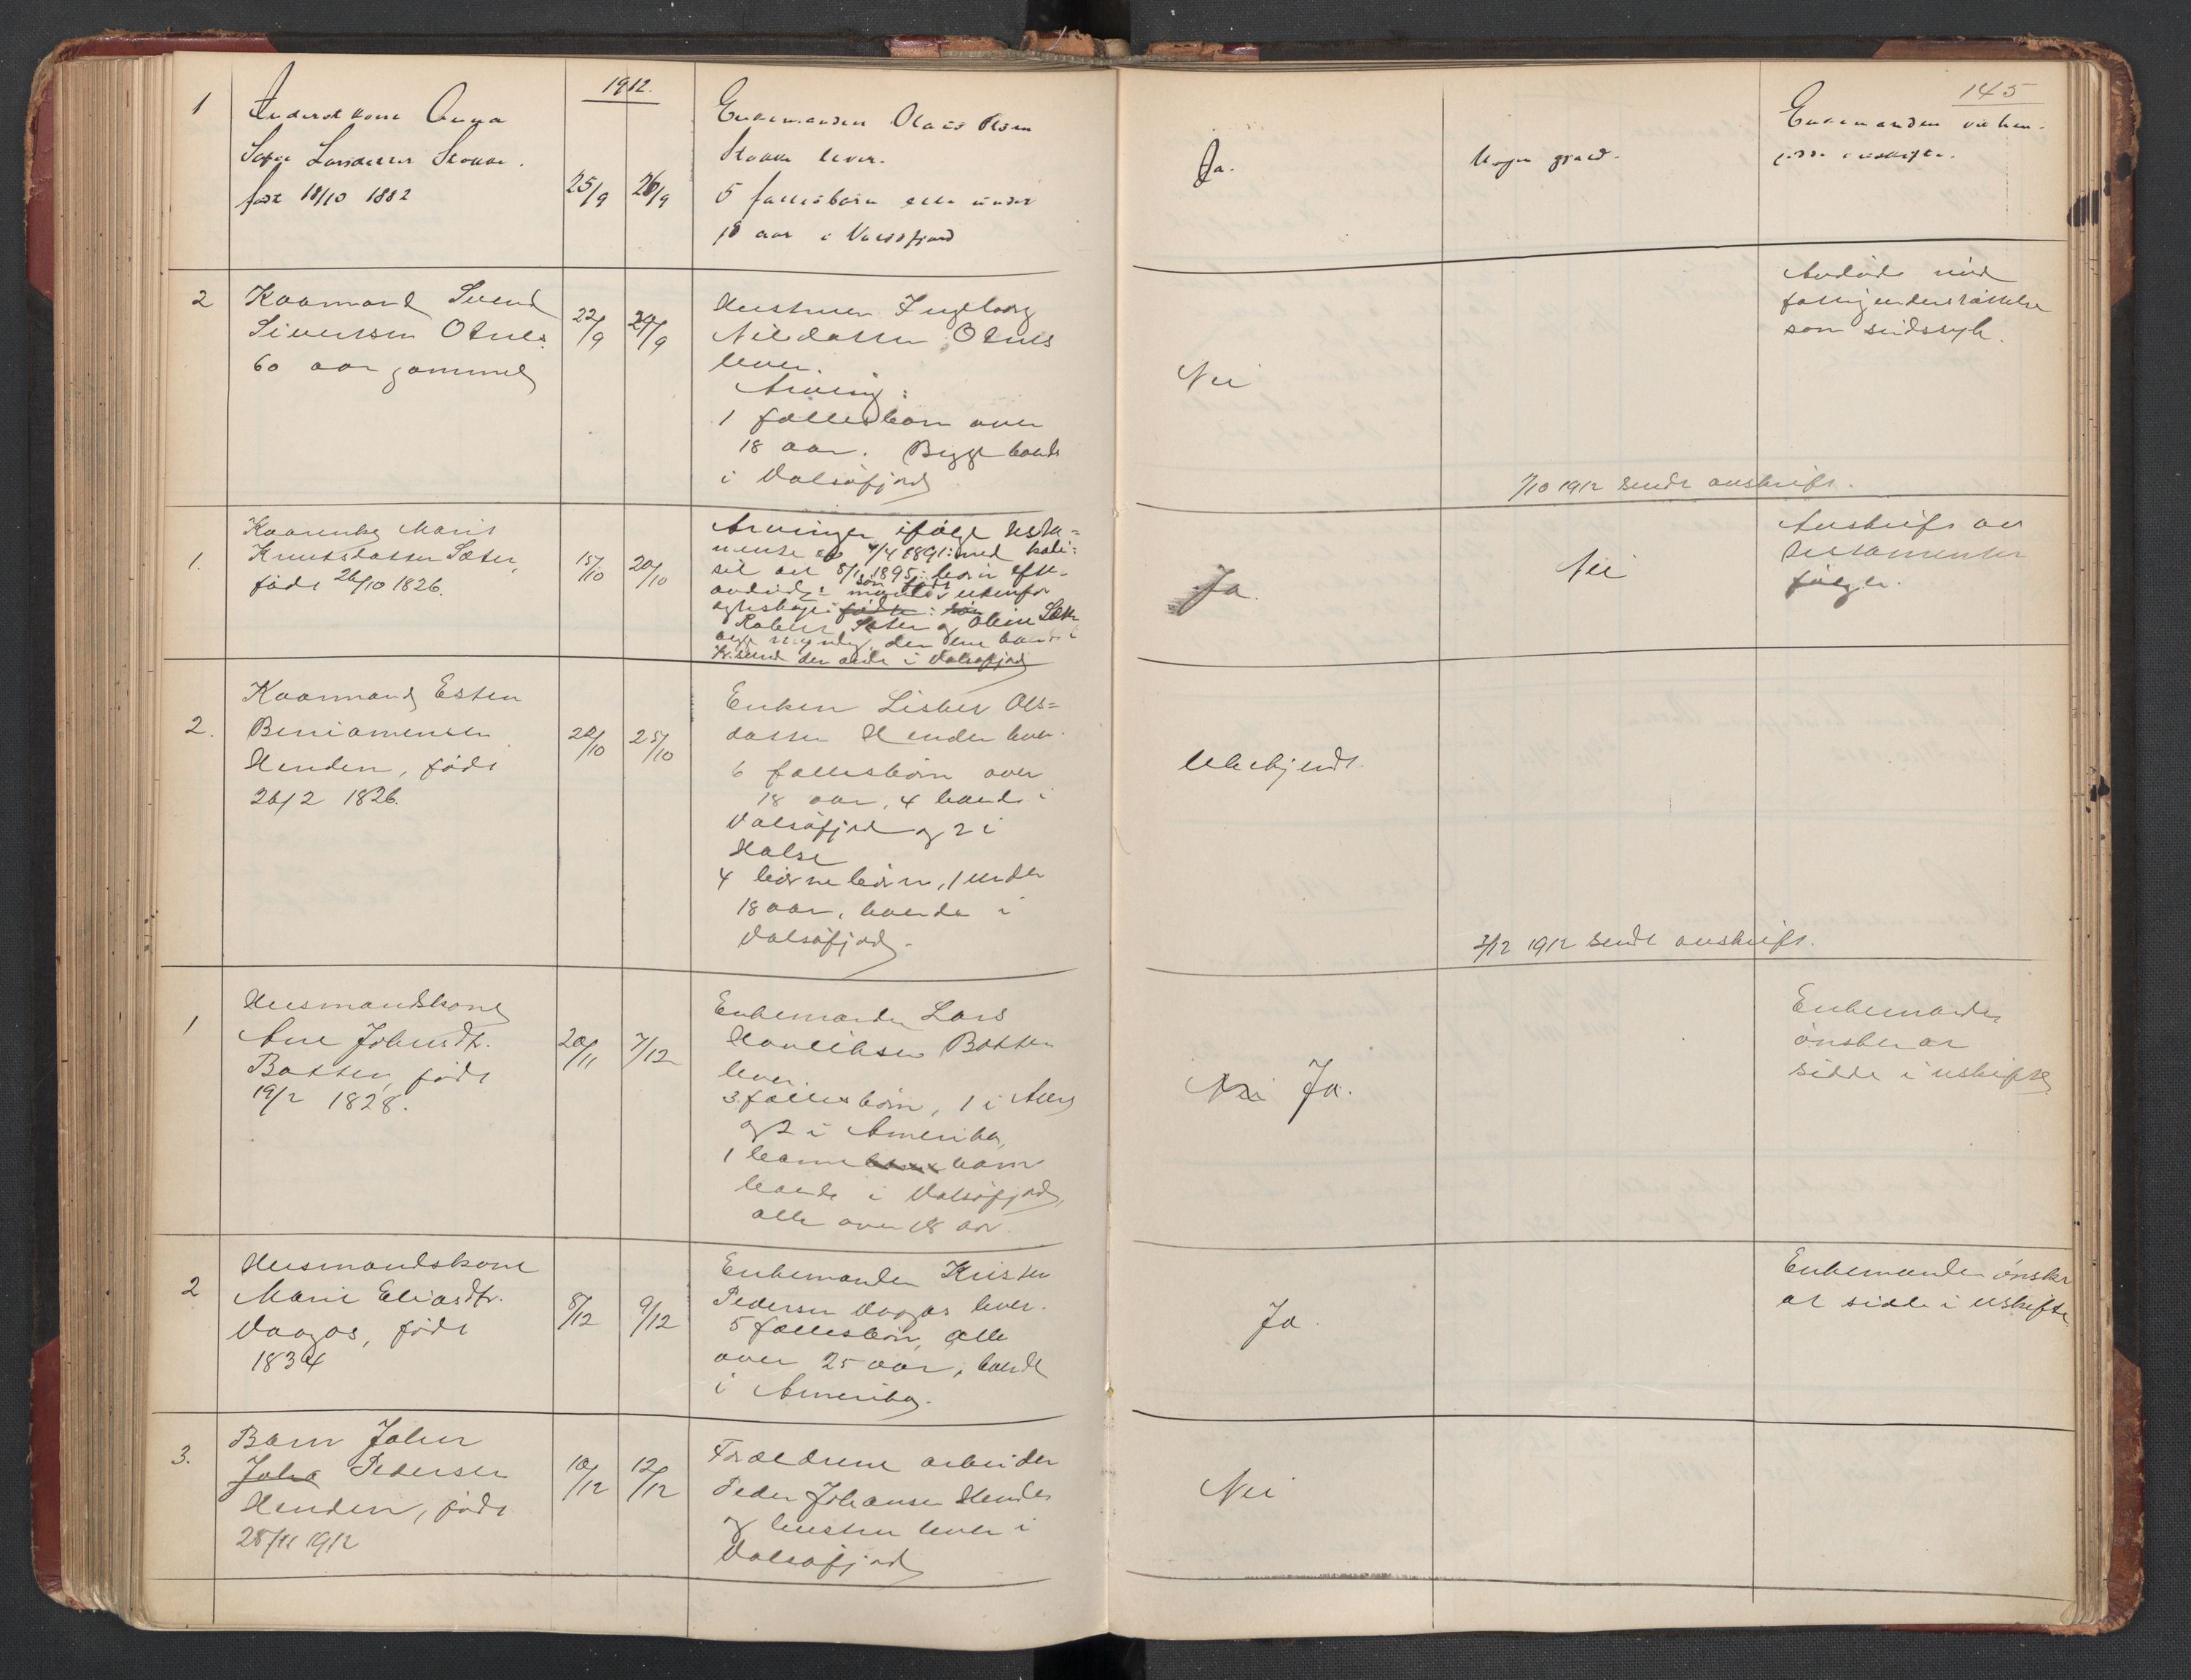 1912.
145
1
Anna
Stokke.
født 18/10 1882
25/9 26/9
Enkemanden Olaus Olsen
Stokke lever.
5 fællesbørn alle under
18 aar i Valsøfjord
Ja.
Ingen gjæld.
Enkemanden vil hen-
sidde i uskifte.
2
Kaarmand Svend
Siversen Otnes
60 aar gammel
22/9 24/9
Hustruen Ingeborg
Nilsdatter Otnes
lever.
Arving:
1 fællesbarn over
18 aar. Begge boende
i Valsøfjord
Nei
Avdøde nød
fattigunderstøttelse
som sindssyk.
7/10 1912 sendt avskrift.
1.
Kaarenke Marit
Knutsdatter Sæter,
født 26/10 1826.
15/10 20/10
Arvinger ifølge testa-
mente av 4/4 1891 med kodi-
sil av 8/1 1895: børn efter
avdøde: som født utenfor
egteskape: født: søn
Robert Sæter og Oline Sæter
begge myndig, den ene boende i
Kr.sund den andre i Valsøfjord
Ja.
Nei
Avskrift av
testamenter
følger.
2.
Kaarmand Esten
Beniamensen
Henden, født
26/2 1826.
22/10 25/10
Enken Lisbet Ols-
datter Henden lever.
6 fællesbørn over
18 aar, 4 boende i
Valsøfjord og 2 i
Halse
4 børnebørn, 1 under
18 aar, boende i
Valsøfjord.
Ubekjendt.
3/12 1912 sendt avskrift.
1
Husmandskone
Ane Johnsdtr.
Botten, født
19/2 1828.
20/11 7/12
Enkemanden Lars
Henriksen Botten
lever.
3 fællesbørn, 1 i Aure
og 2 i Amerika,
1 barnebarn
boende i Valsøfjord,
alle over 18 aar.
Nei Ja.
Enkemanden
ønsker at
sidde i uskifte
2
Husmandskone
Marie Eliasdtr.
Vaagos, født
1834
8/12 9/12
Enkemanden Kristen
Pedersen Vaagos lever.
5 fællesbørn, alle
over 25 aar, boende
i Amerika.
Ja.
Enkemanden ønsker
at sidde i uskifte
3.
Barn Johan
Johan Pedersen
Henden, født
28/11 1912
10/12 12/12
Forældrene arbeider
Peder Johansen Henden
og hustru lever i
Valsøfjord
Nei